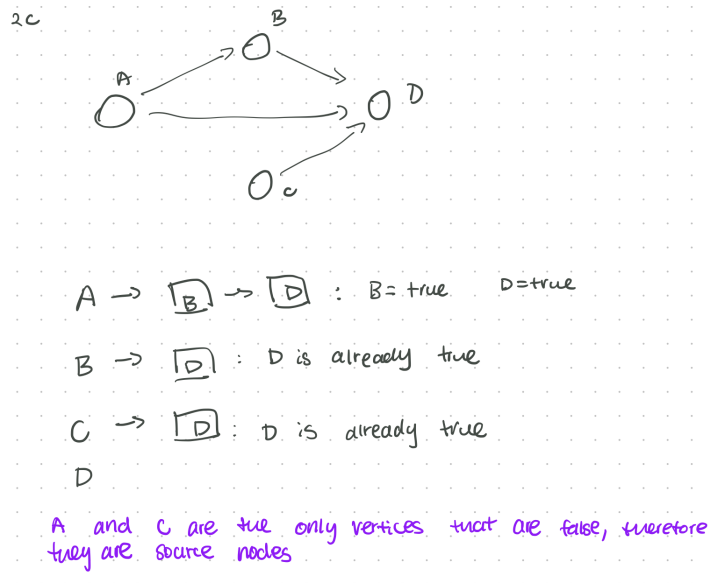 2c
B
A
D
c
A → B → D : B= true D=true
B → D : D is already true
C → D : D is already true
D
A and C are the only vertices that are false, therefore
they are source nodes